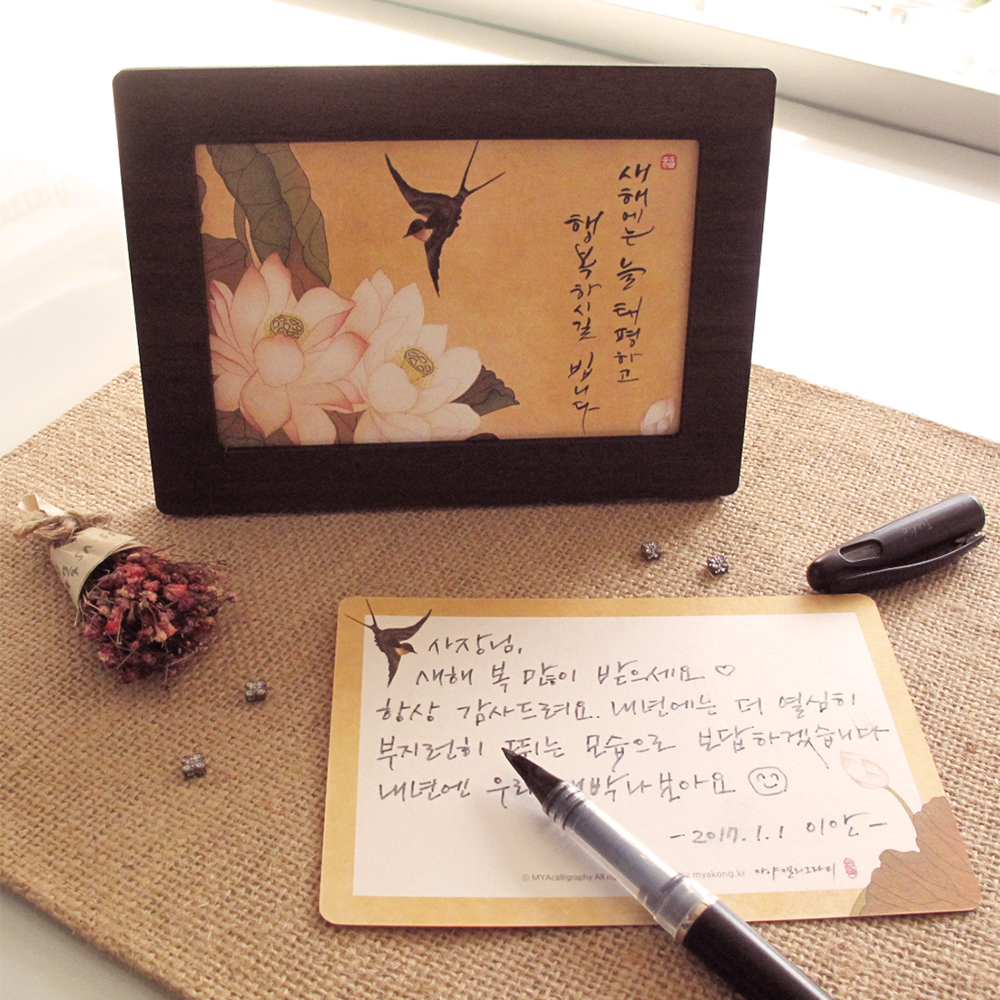 새해에는 늘 태평하고
행복하시길 빕니다
福
사장님,
새해 복 많이 받으세요 ♡
항상 감사드려요. 내년에는 더 열심히
부지런히 뛰는 모습으로 보답하겠습니다
내년엔 보아요
-2017.1.1 이안-
© MYAcalligraphy All www.myakong.kr 마야캘리그라피